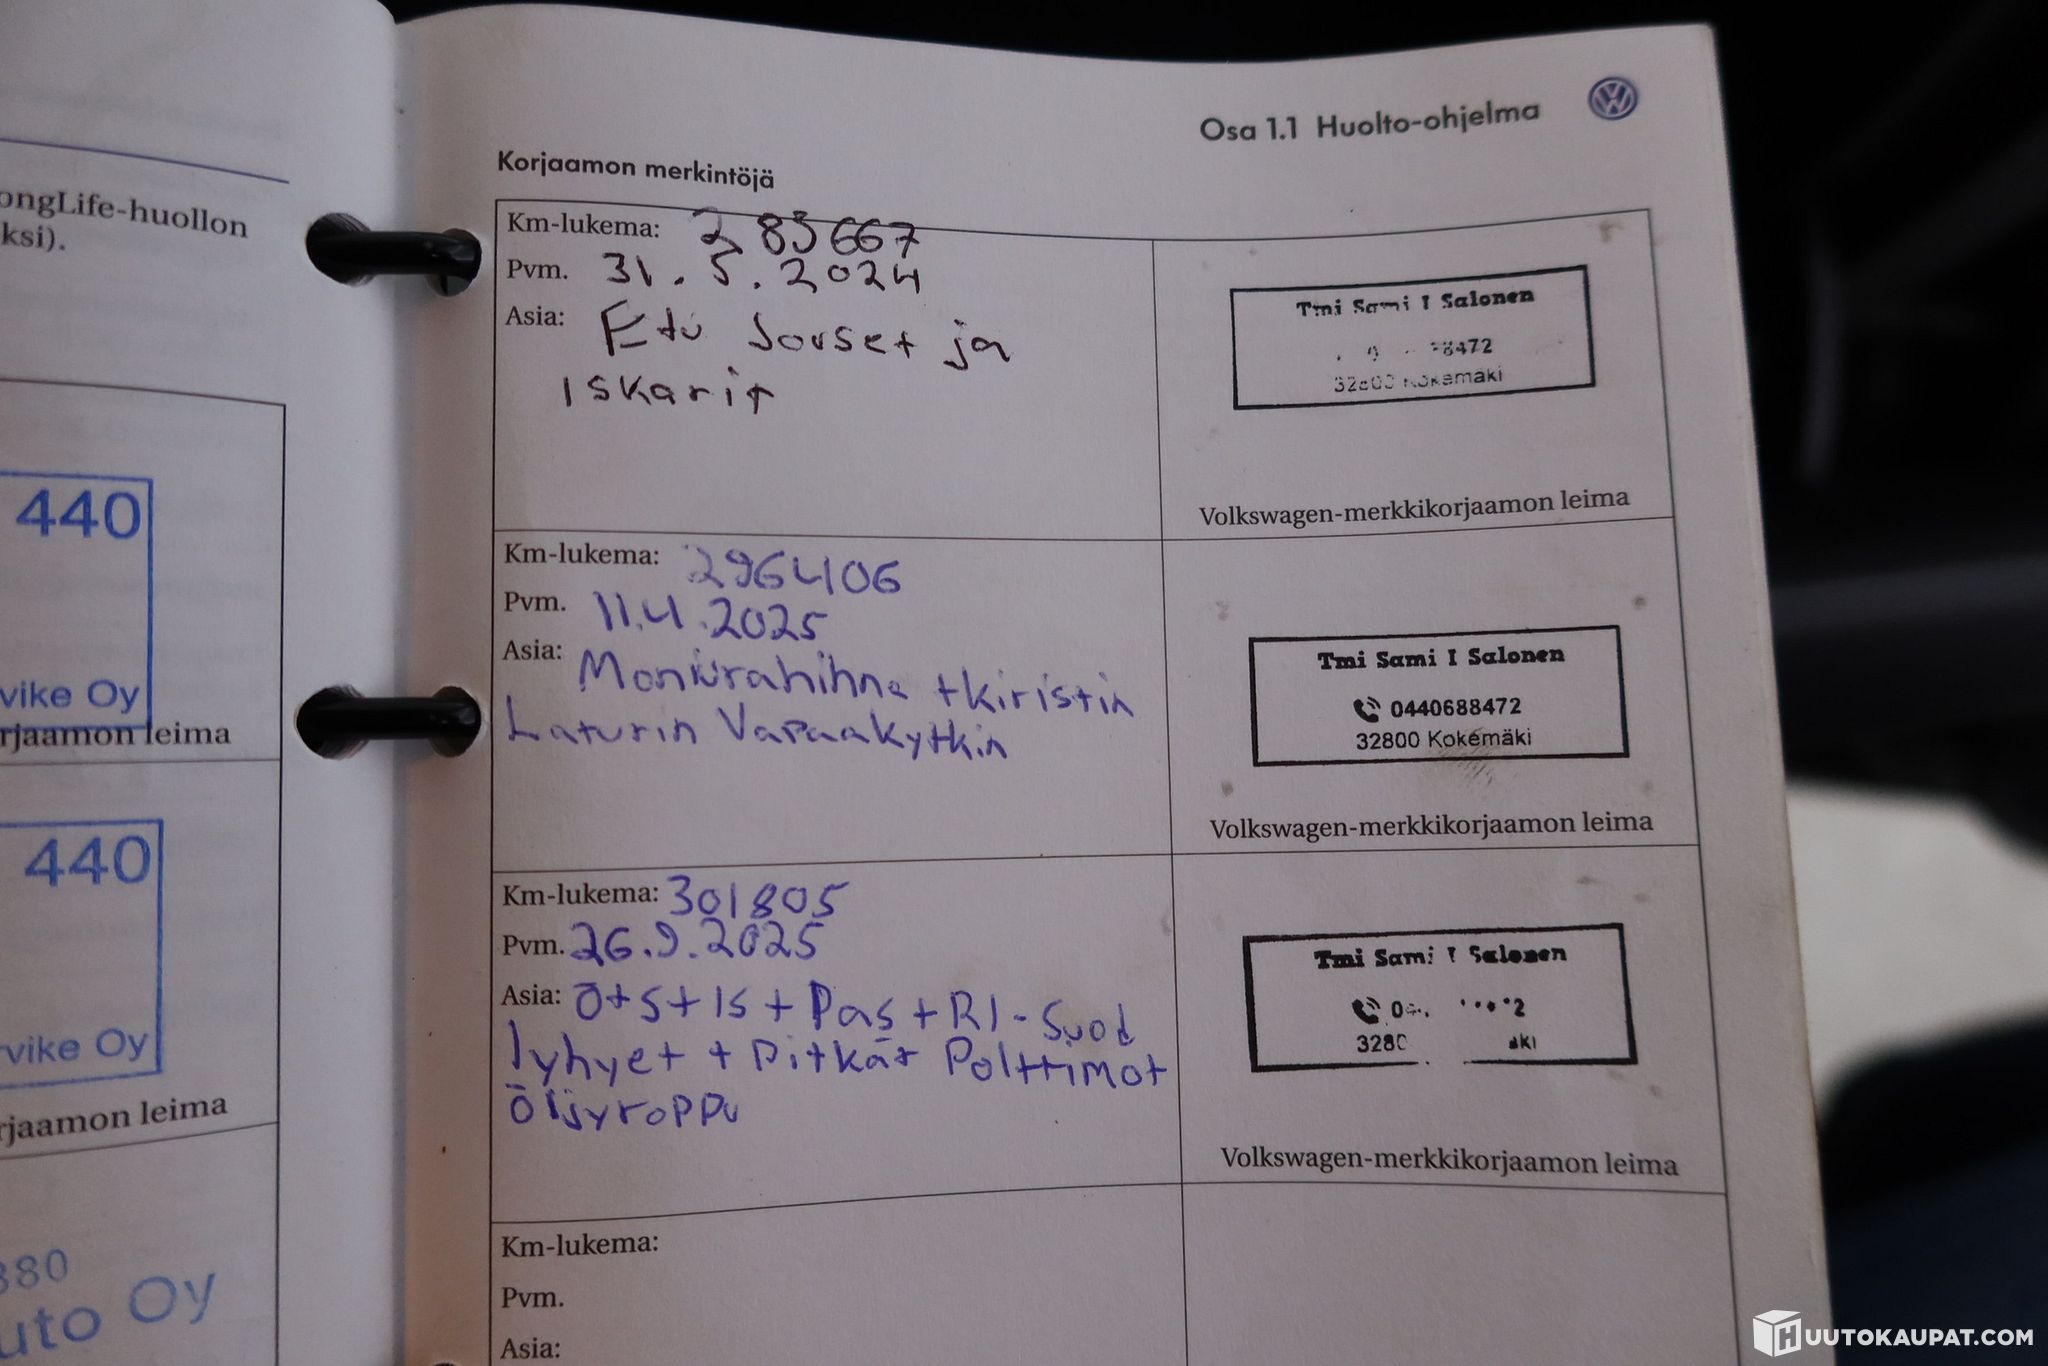 ongLife-huollon
ksi).
440
vike Oy
rjaamon leima
440
vike Oy
rjaamon leima
380
uto Oy
Osa 1.1 Huolto-ohjelma
Korjaamon merkintöjä
Km-lukema: 283667
Pvm. 31.5.2024
Asia: Etu Jouset ja
Iskarit
Tmi Sami I Salonen
8472
32800 Kokemäki
Volkswagen-merkkikorjaamon leima
Km-lukema: 296406
Pvm. 11.4.2025
Asia: Moniurahihna + kiristin
Laturin Vapaakytkin
Tmi Sami I Salonen
0440688472
32800 Kokemäki
Volkswagen-merkkikorjaamon leima
Km-lukema: 301805
Pvm. 26.9.2025
Asia: Ö+S+IS+Pas+RI-Suod
lyhyet + Pitkät Polttimot
Öljyroppu
Tmi Sami I Salonen
Volkswagen-merkkikorjaamon leima
Km-lukema:
Pvm.
Asia:
HUUTOKAUPAT.COM